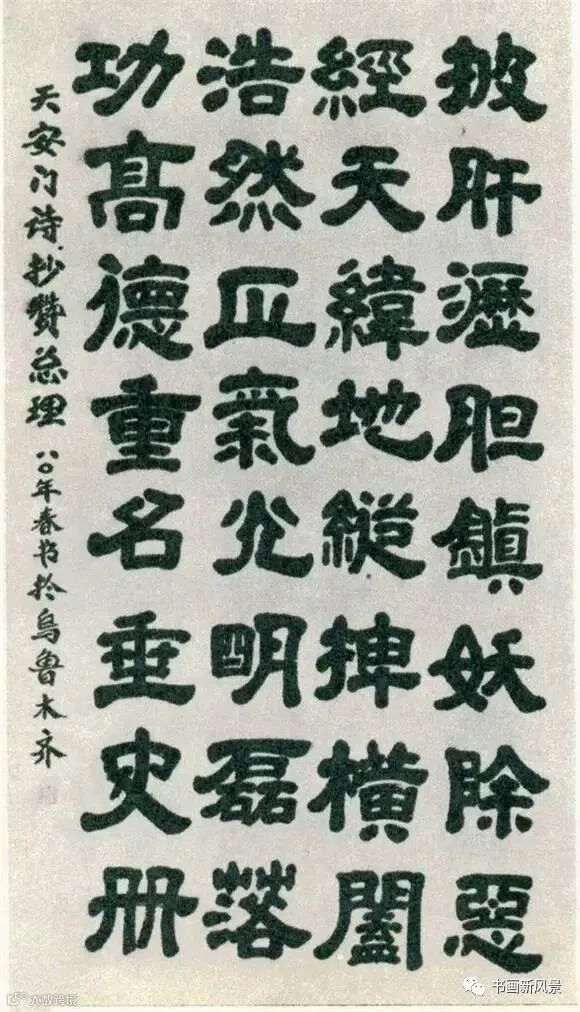 披肝瀝胆鎮妖除惡
經天緯地縱捭橫闔
浩然正氣光明磊落
功高德重名垂史册
天安门诗抄赞总理 八〇年春书於乌鲁木齐
书画新风景
大数跨境